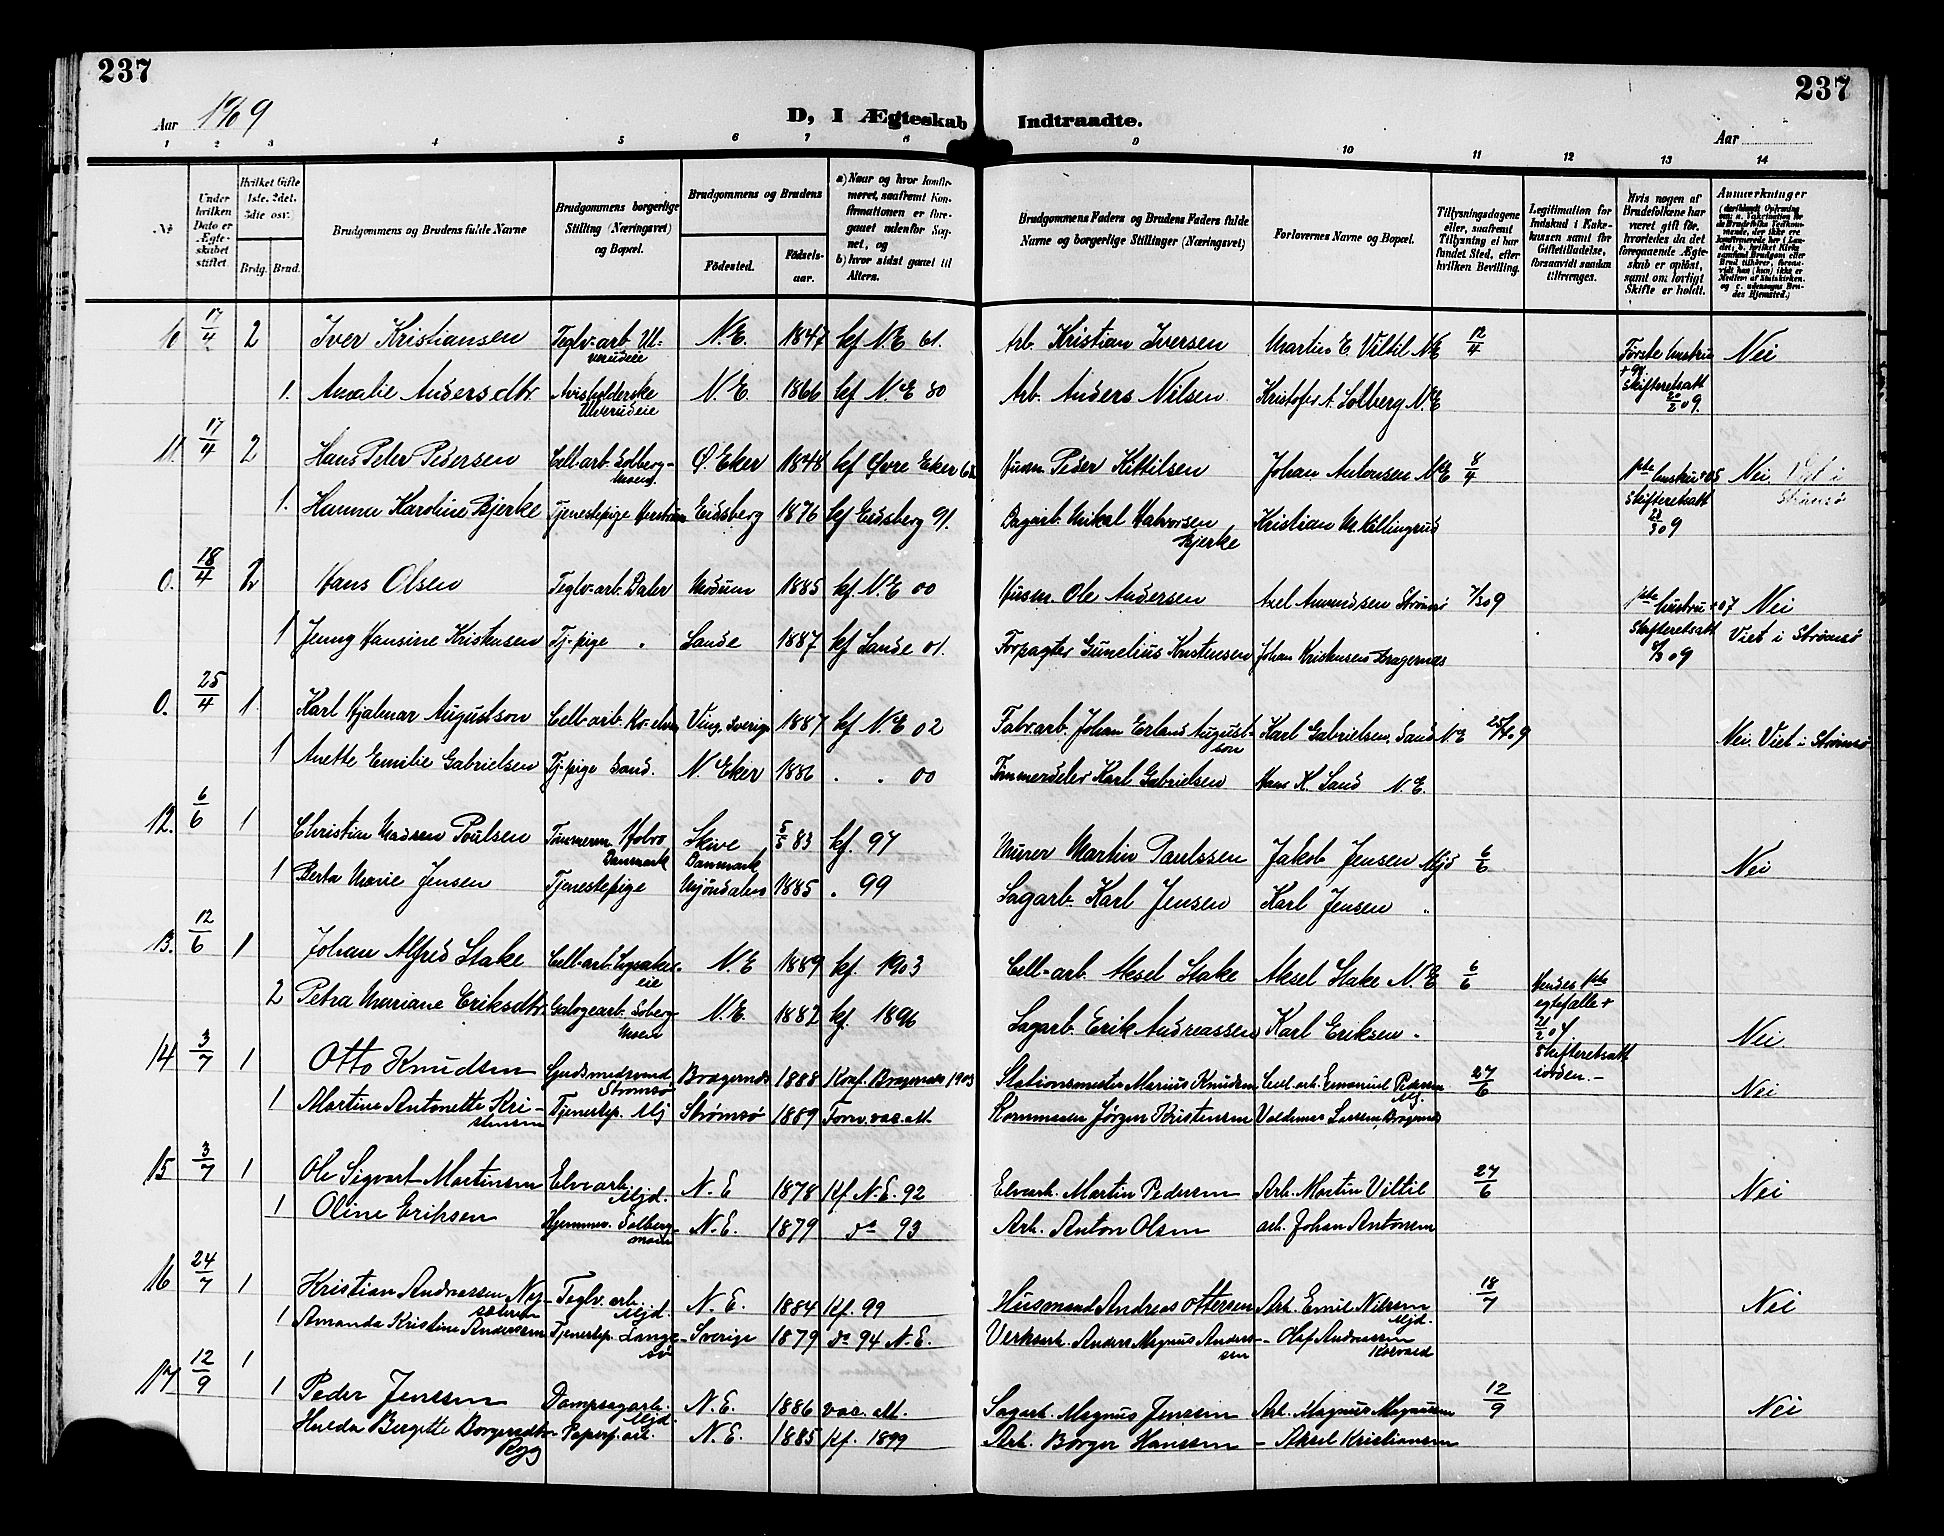 237
237
Aar 1909
D, I Ægteskab Indtraadte.
Aar
1 2 3 4 5 6 7 8 9 10 11 12 13 14
No
Under hvilken Dato er Ægteskabet stiftet.
Hvilket Gifte 1ste, 2det, 3die osv.
Brdg. Brud.
Brudgommens og Brudens fulde Navne
Brudgommens borgerlige Stilling (Næringsvei) og Bopæl.
Brudgommens og Brudens
Fødested.
Fødselsaar.
a) Naar og hvor konfirmeret, saafremt Konfirmationen er foregaaet udenfor Sognet, og b) hvor sidst gaaet til Alters.
Brudgommens Faders og Brudens Faders fulde Navne og borgerlige Stillinger (Næringsvei)
Forlovernes Navne og Bopæl.
Tillysningsdagene eller, saafremt Tillysning ei har fundet Sted, efter hvilken Bevilling.
Legitimation for Indskud i Enkekassen samt for Giftetilladelse, forsaavidt saadan tiltrænges.
Hvis nogen af Brudefolkene har været gift før, hvorledes da det foregaaende Ægteskab er opløst, samt om lovligt Skifte er holdt.
Anmærkninger
10 17/4 2 Iver Kristiansen Teglv.arb. Ulverudeie N.E. 1847 kf N.E 61. Arb. Kristian Iversen Martin E. Viltil N.E 12/4 Første hustru Nei
1. Amalie Andersdtr. Avisholderske Ulverudeie N.E. 1866 kf N.E 80 Arb. Anders Nilsen Kristofer A. Solberg N.E + 99 Skifteretsatt 20/2 09.
11. 17/4 2 Hans Peter Pedersen Cell-arb. Solbergmoen Ø. Eker 1848 kf Øvre Eker Husm. Peder Kittilsen Johan Antonsen N.E 8/4 1ste hustru + 05 Nei Viet i Strømsø
1. Hanna Karoline Bjerke Tjenestepige Eidsberg 1876 kf Eidsberg 91. Dagarb. Mikal Halvorsen Bjerke Kristian M. Killingrud Skifteretsatt 09
0. 18/4 2 Hans Olsen Teglv-arb. Daler Modum 1885 kf N.E 00 Husm. Ole Andersen Axel Amundsen Strømsø 09 1ste hustru + 07 Nei
1 Jenny Hansine Kristensen Tj.-pige " Sande 1887 kf Sande 01. Forpagter Gunelius Kristensen Johan Kristensen Bragernes Skifteretsatt 09 Viet i Strømsø
0. 25/4 1. Karl Hjalmar Augustson Cell-arb. Ving, Sverige 1887 kf N.E 02 Fabr.arb. Johan Erland Augustson Karl Gabrielsen, Sand N.E 25/4 09 Nei. Viet i Strømsø
1 Anette Emilie Gabrielsen Tj-pige Sand. N. Eker 1886 " " 00 Tømmerdeler Karl Gabrielsen Hans K. Sand N.E.
12. 6/6 1 Christian Madsen Poulsen Tømmerm. Hobro Danmark Skive Danmark 5/5 83 kf. 97 Murer Martin Paulssen Jakob Jensen Mjd 6/6 Nei
1 Berta Marie Jensen Tjenestepige Mjøndalen 1885 " 99 Sagarb. Karl Jensen Karl Jensen "
13. 12/6 1 Johan Alfred Stake Cell-arb. Lysakereie N.E 1889 kf. 1903 Cell-arb. Aksel Stake Aksel Stake N.E 6/6 Hendes 1ste
2 Petra Mariane Eriksdtr. Galogearb. Solbergmoen N.E. 1882 kf. 1896 Sagarb. Erik Andreassen Karl Eriksen " egtefælle + 21/2 04 skifteretsatt iorden.- Nei.
14 3/7 1 Otto Knudsen Gudsmedsvend Strømsø Bragernes 1888 Konf. Bragernes 1903 Stationsmester Marius Knudsen Cell.arb. Emanuel Pedersen Mj. 27/6 Nei
1 Martine Antonette Kristensen Tjenestep. Mj Strømsø 1889 Forv. vac. att. Kornmaaler Jørgen Kristensen Valdemar Larsen, Bragernes
15 3/7 1 Ole Sigvart Martinsen Elvearb. Mjd. N.E 1878 Kf N.E. 92 Elvearb. Martin Pedersen Arb. Martin Viltil 27/6 Nei
1 Oline Eriksen Hjemmev. Solbergmoen N.E. 1879 do 93 Arb. Anton Olsen arb. Johan Antonsen
16 24/7 1 Kristian Andreassen Teglv. arb. Mjd. N.E. 1884 Kf. 99 Husmand Andreas Ottersen Arb. Emil Nilsen Mjd. 18/7 Nei
1 Amanda Kristine Anderssen Tjenestep. Sverige 1879 do 94 N.E. Verksarb. Anders Magnus Anderssen - Olaf Andreassen
17 12/9 1 1 Peder Jenssen Dampsagarb. Mjd. N.E. 1886 vac. att. Sagarb. Magnus Jenssen Arb. Magnus Magnussen 12/9 Nei
Hulda Birgitte Borgersdtr. Rygg Papirf. arb. N.E. 1885 Kf. 1899 Arb. Borger Hanssen - Aksel Kristiansen